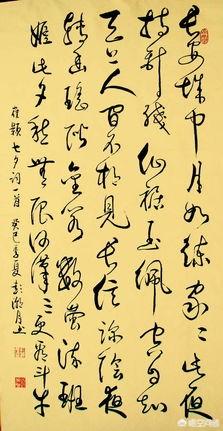 长安城中月如練家々此夜
持針綫仙裙玉佩空自知
天上人间不相見长信深陰夜
转幽瑶階金阁数螢流班
姬此夕愁無限河漢三更看斗牛
崔颢七夕词一首 癸巳季夏 彭 月书
悟空问答